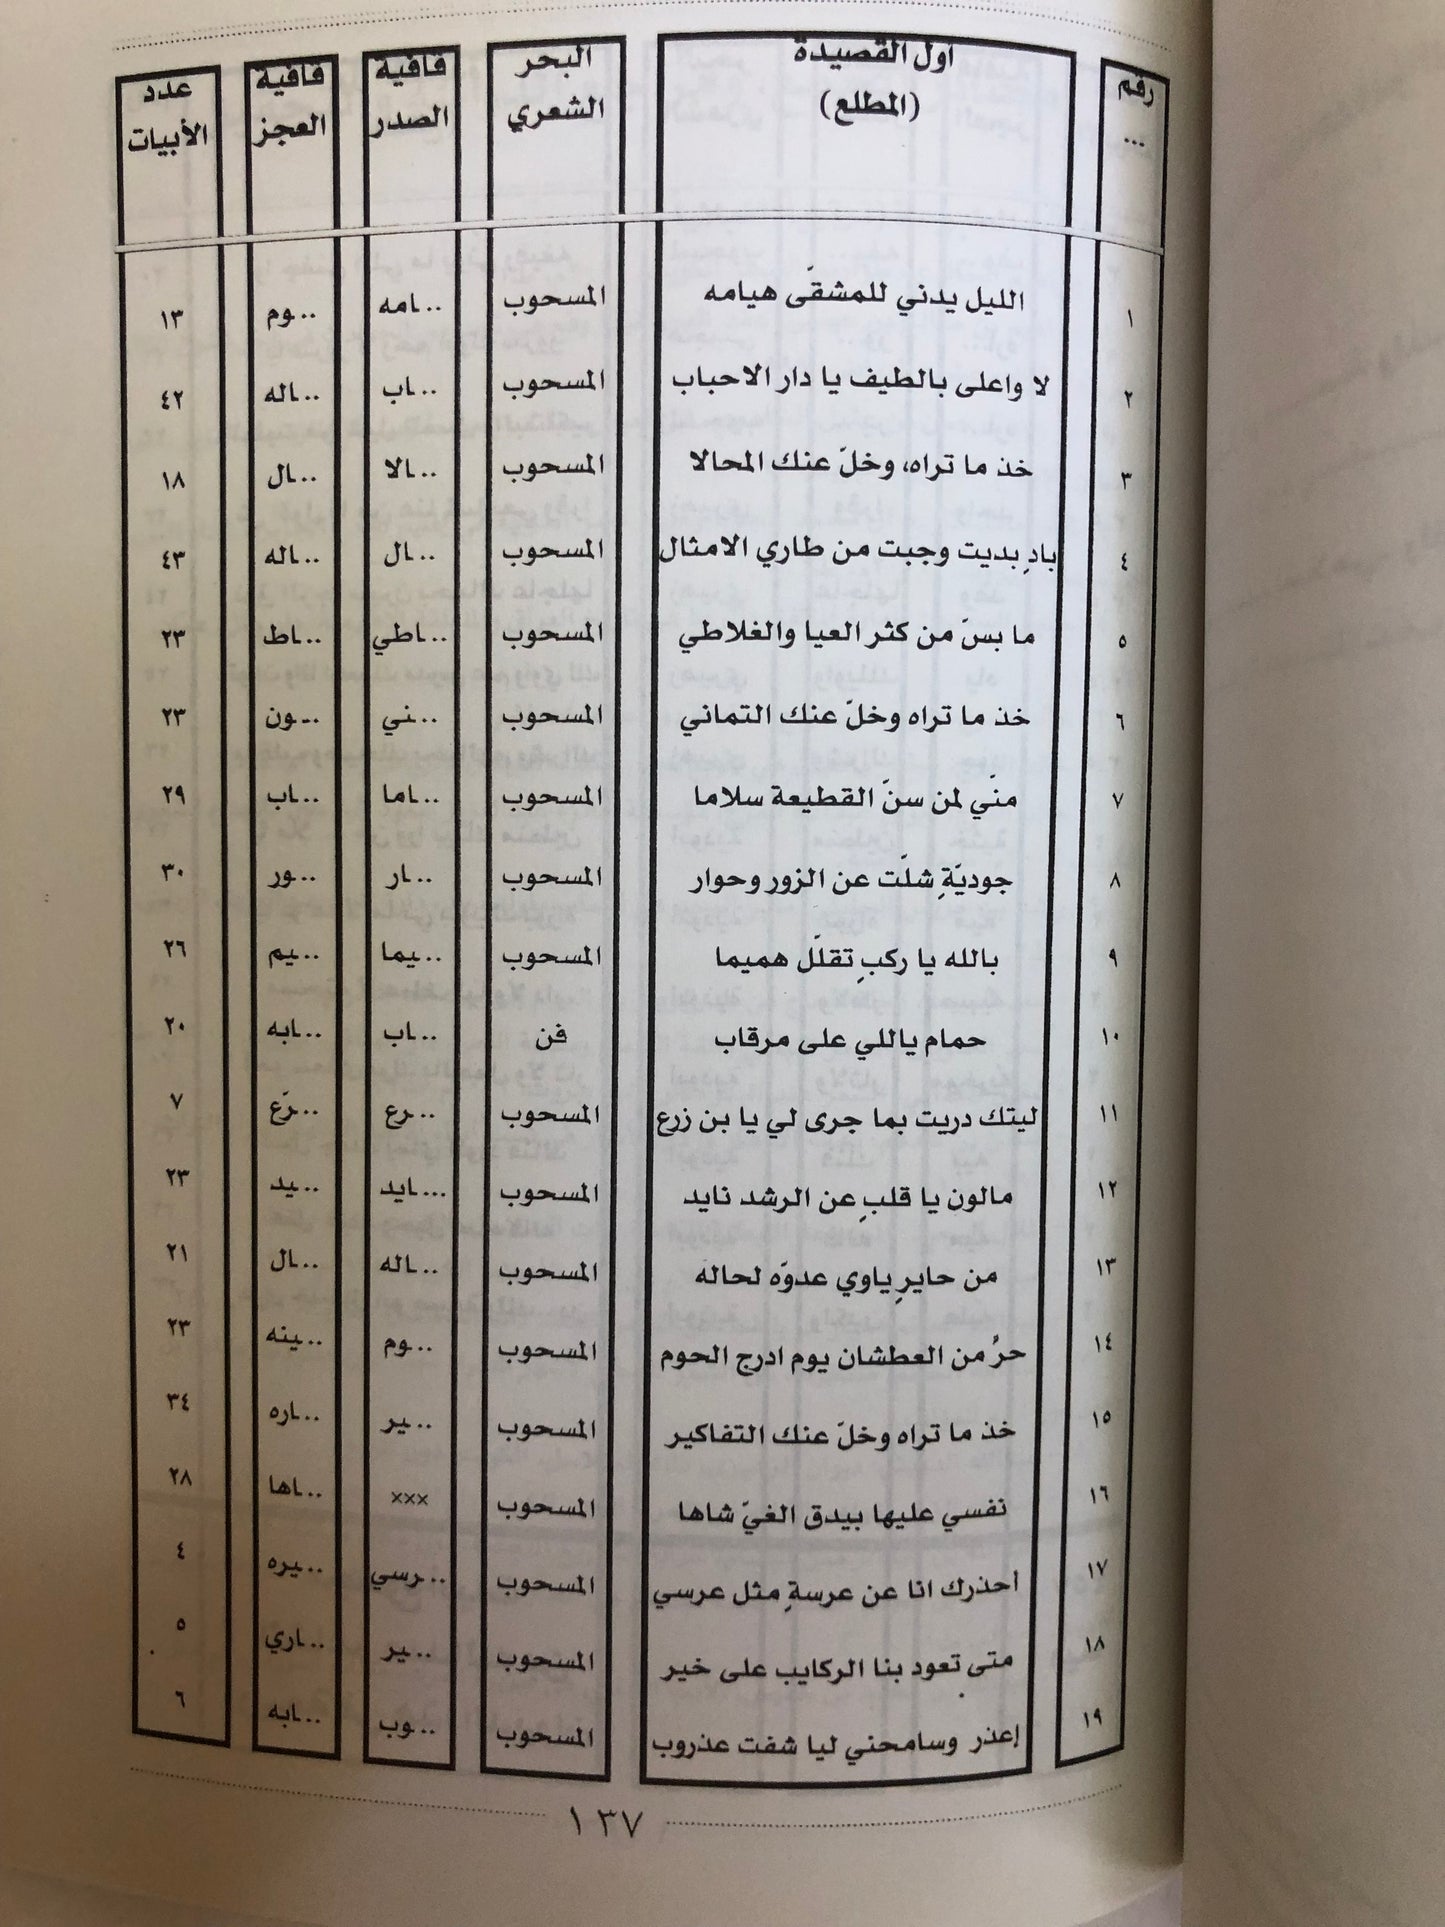 رقم ... اول القصيدة (المطلع) البحر الشعري قافية الصدر قافية العجز عدد الأبيات
١ الليل يدني للمشقّى هيامه المسحوب ..ـامه ..ـوم ١٣
٢ لا واعلى بالطيف يا دار الاحباب المسحوب ..ـاب ..ـاله ٤٢
٣ خذ ما تراه، وخلّ عنك المحالا المسحوب ..ـالا ..ـال ١٨
٤ بادٍ بديت وجبت من طاري الامثال المسحوب ..ـال ..ـاله ٤٣
٥ ما بسّ من كثر العيا والغلاطي المسحوب ..ـاطي ..ـاط ٢٣
٦ خذ ما تراه وخلّ عنك التماني المسحوب ..ـني ..ـون ٢٣
٧ منّي لمن سنّ القطيعة سلاما المسحوب ..ـاما ..ـاب ٢٩
٨ جوديّةٍ شلّت عن الزور وحوار المسحوب ..ـار ..ـور ٣٠
٩ بالله يا ركبٍ تقلّل هميما المسحوب ..ـيما ..ـيم ٢٦
١٠ حمام ياللي على مرقاب فن ..ـاب ..ـابه ٢٠
١١ ليتك دريت بما جرى لي يا بن زرع المسحوب ..ـرع ..ـرّع ٧
١٢ مالون يا قلبٍ عن الرشد نايد المسحوب ...ـايد ..ـيد ٢٣
١٣ من حايرٍ ياوي عدوّه لحاله المسحوب ..ـاله ..ـال ٢١
١٤ حرُ من العطشان يوم ادرج الحوم المسحوب ..ـوم ..ـينه ٢٣
١٥ خذ ما تراه وخلّ عنك التفاكير المسحوب ..ـير ..ـاره ٣٤
١٦ نفسي عليها بيدق الغيّ شاها المسحوب ××× ..ـاها ٢٨
١٧ أحذرك انا عن عرسةٍ مثل عرسي المسحوب ..ـرسي ..ـيره ٤
١٨ متى تعود بنا الركايب على خير المسحوب ..ـير ..ـاري ٥
١٩ إعذر وسامحني ليا شفت عذروب المسحوب ..ـوب ..ـابه ٦
١٣٧